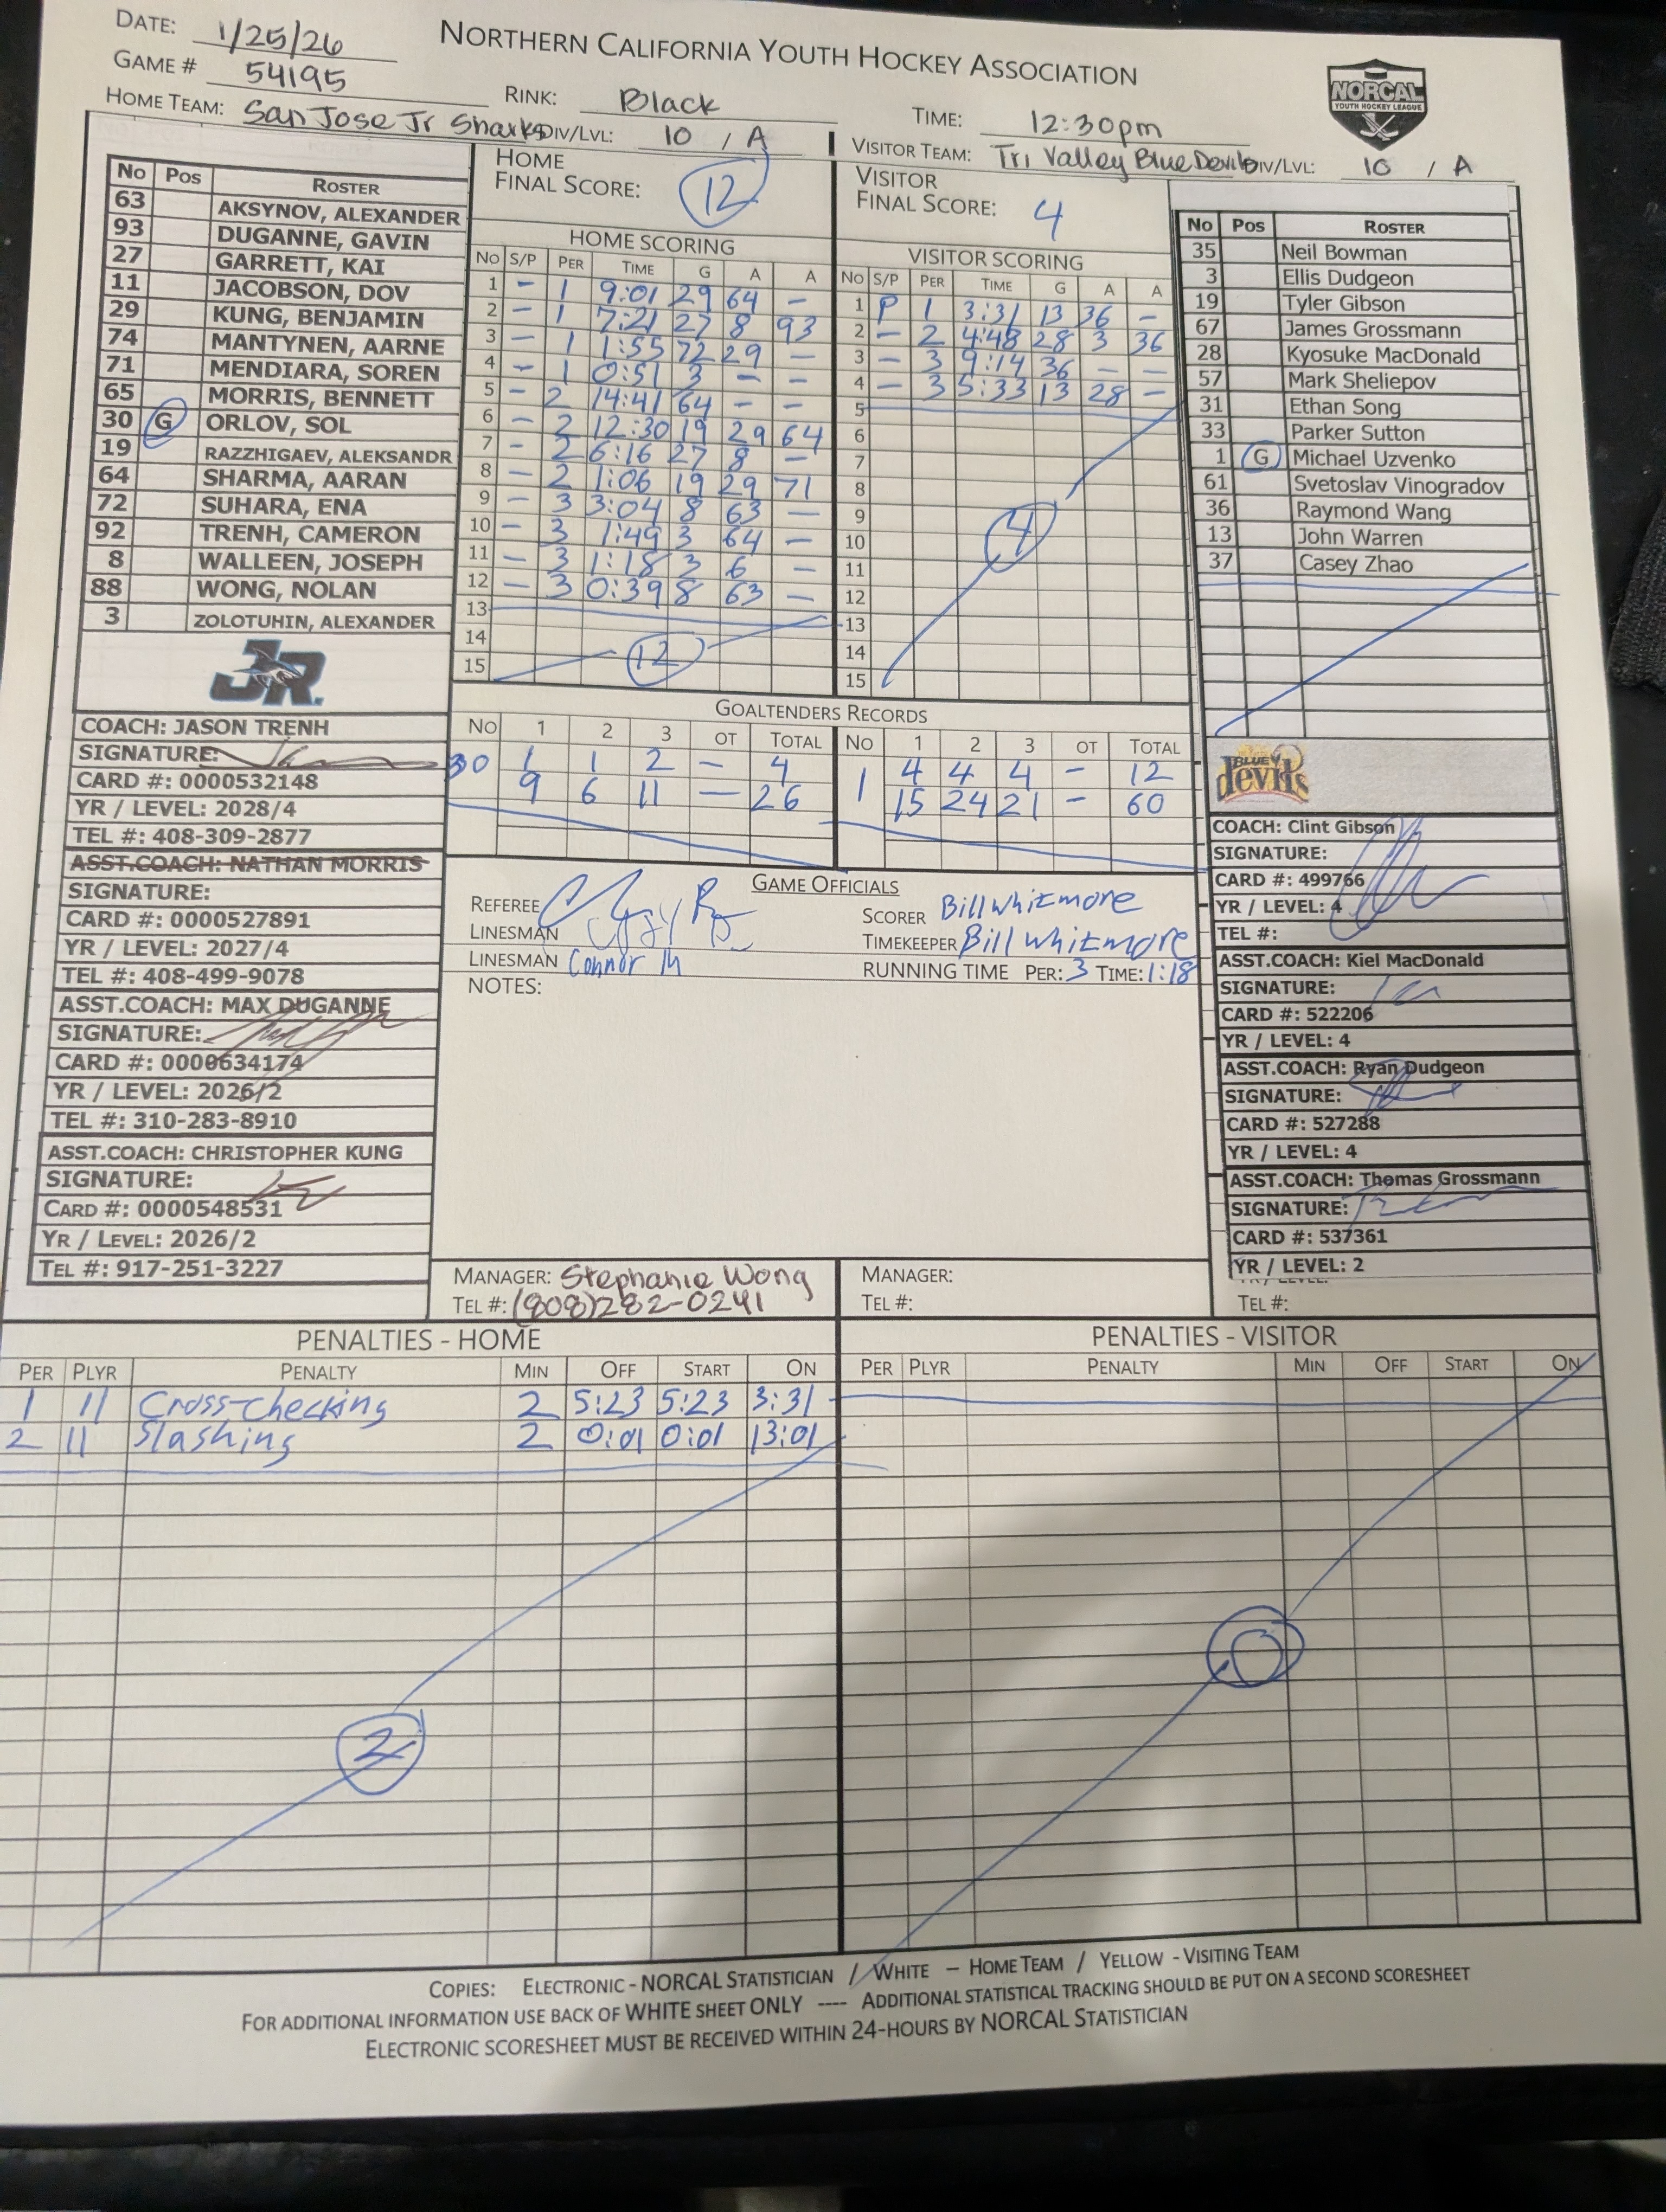 DATE: 1/25/26
NORTHERN CALIFORNIA YOUTH HOCKEY ASSOCIATION
GAME # 54195
RINK: Black
TIME: 12:30pm
NORCAL
YOUTH HOCKEY LEAGUE
HOME TEAM: San Jose Jr Sharks DIV/LVL: 10 / A
VISITOR TEAM: Tri Valley Blue Devils DIV/LVL: 10 / A
HOME FINAL SCORE: 12
VISITOR FINAL SCORE: 4
No Pos ROSTER
63 AKSYNOV, ALEXANDER
93 DUGANNE, GAVIN
27 GARRETT, KAI
11 JACOBSON, DOV
29 KUNG, BENJAMIN
74 MANTYNEN, AARNE
71 MENDIARA, SOREN
65 MORRIS, BENNETT
30 G ORLOV, SOL
19 RAZZHIGAEV, ALEKSANDR
64 SHARMA, AARAN
72 SUHARA, ENA
92 TRENH, CAMERON
8 WALLEEN, JOSEPH
88 WONG, NOLAN
3 ZOLOTUHIN, ALEXANDER
JR.
HOME SCORING
NO S/P PER TIME G A A
1 - 1 9:01 29 64 -
2 - 1 7:21 27 8 93
3 - 1 1:55 72 29 -
4 - 1 0:51 3 - -
5 - 2 14:41 64 - -
6 - 2 12:30 19 29 64
7 - 2 6:16 27 8 -
8 - 2 1:06 19 29 71
9 - 3 3:04 8 63 -
10 - 3 1:49 3 64 -
11 - 3 1:18 3 6 -
12 - 3 0:39 8 63 -
13
14
15
12
VISITOR SCORING
NO S/P PER TIME G A A
1 P 1 3:31 13 36 -
2 - 2 4:48 28 3 36
3 - 3 9:14 36 - -
4 - 3 5:33 13 28 -
5
6
7
8
9
10
11
12
13
14
15
4
No Pos ROSTER
35 Neil Bowman
3 Ellis Dudgeon
19 Tyler Gibson
67 James Grossmann
28 Kyosuke MacDonald
57 Mark Sheliepov
31 Ethan Song
33 Parker Sutton
1 G Michael Uzvenko
61 Svetoslav Vinogradov
36 Raymond Wang
13 John Warren
37 Casey Zhao
GOALTENDERS RECORDS
NO 1 2 3 OT TOTAL
30 1 1 2 - 4
9 6 11 - 26
NO 1 2 3 OT TOTAL
1 4 4 4 - 12
15 24 21 - 60
COACH: JASON TRENH
SIGNATURE:
CARD #: 0000532148
YR / LEVEL: 2028/4
TEL #: 408-309-2877
ASST.COACH: NATHAN MORRIS
SIGNATURE:
CARD #: 0000527891
YR / LEVEL: 2027/4
TEL #: 408-499-9078
ASST.COACH: MAX DUGANNE
SIGNATURE:
CARD #: 0000634174
YR / LEVEL: 2026/2
TEL #: 310-283-8910
ASST.COACH: CHRISTOPHER KUNG
SIGNATURE:
CARD #: 0000548531
YR / LEVEL: 2026/2
TEL #: 917-251-3227
GAME OFFICIALS
REFEREE
LINESMAN
LINESMAN Connor M
SCORER Bill Whitmore
TIMEKEEPER Bill Whitmore
RUNNING TIME PER: 3 TIME: 1:18
NOTES:
BLUE devils
COACH: Clint Gibson
SIGNATURE:
CARD #: 499766
YR / LEVEL: 4
TEL #:
ASST.COACH: Kiel MacDonald
SIGNATURE:
CARD #: 522206
YR / LEVEL: 4
ASST.COACH: Ryan Dudgeon
SIGNATURE:
CARD #: 527288
YR / LEVEL: 4
ASST.COACH: Thomas Grossmann
SIGNATURE:
CARD #: 537361
YR / LEVEL: 2
TEL #:
MANAGER: Stephanie Wong
TEL #: (808)282-0241
MANAGER:
TEL #:
PENALTIES - HOME
PER PLYR PENALTY MIN OFF START ON
1 11 Cross-checking 2 5:23 5:23 3:31
2 11 Slashing 2 0:01 0:01 13:01
2
PENALTIES - VISITOR
PER PLYR PENALTY MIN OFF START ON
0
COPIES: ELECTRONIC - NORCAL STATISTICIAN / WHITE – HOME TEAM / YELLOW - VISITING TEAM
FOR ADDITIONAL INFORMATION USE BACK OF WHITE SHEET ONLY ---- ADDITIONAL STATISTICAL TRACKING SHOULD BE PUT ON A SECOND SCORESHEET
ELECTRONIC SCORESHEET MUST BE RECEIVED WITHIN 24-HOURS BY NORCAL STATISTICIAN